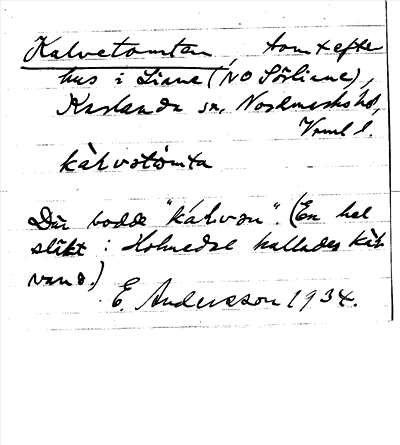 Kalvetomten, tomt efter
hus i Liane (NO Sörliane),
Karlanda sn, Nordmarks hd,
Vrml l.
kàlvətòmta
Där bodde "Kalven". (En hel
släkt i Holmedal kallades Kal-
varna.)
E. Andersson 1934.